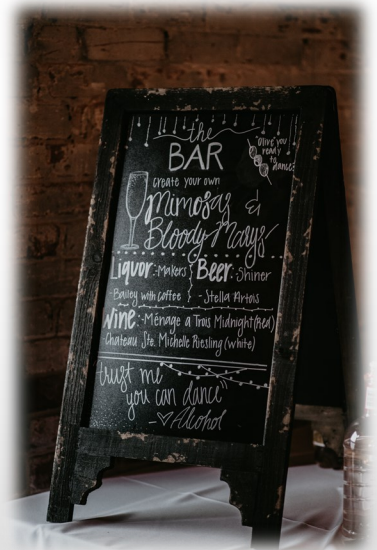 the
BAR
"olive you
ready
to
dance"
create your own
Mimosas &
Bloody Marys
Liquor: Makers
-Bailey with coffee
Beer: Shiner
-Stella Artois
Wine: Ménage à Trois Midnight (red)
Chateau Ste. Michelle Riesling (white)
"trust me
you can dance"
-♡ Alcohol